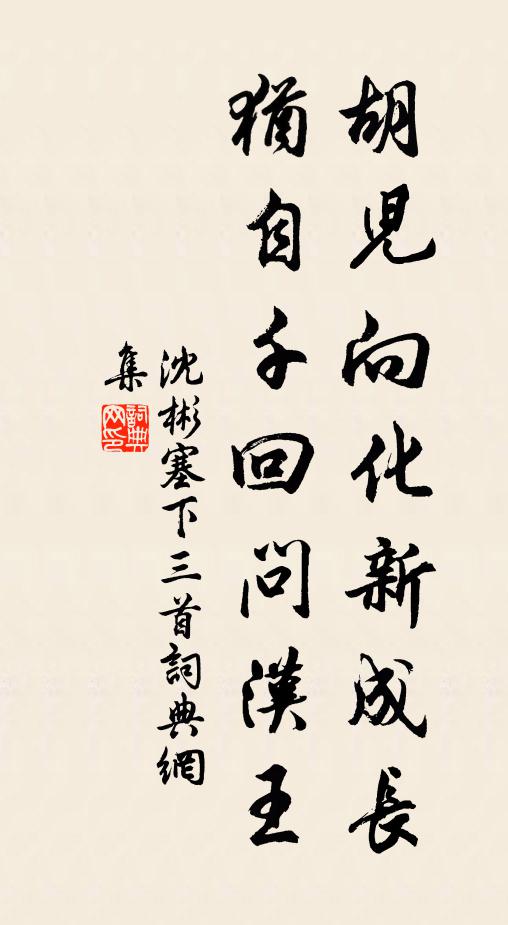 胡児向化新成長
猶自千回問漢王
沈彬塞下三首詞典網
集
詞典
网印